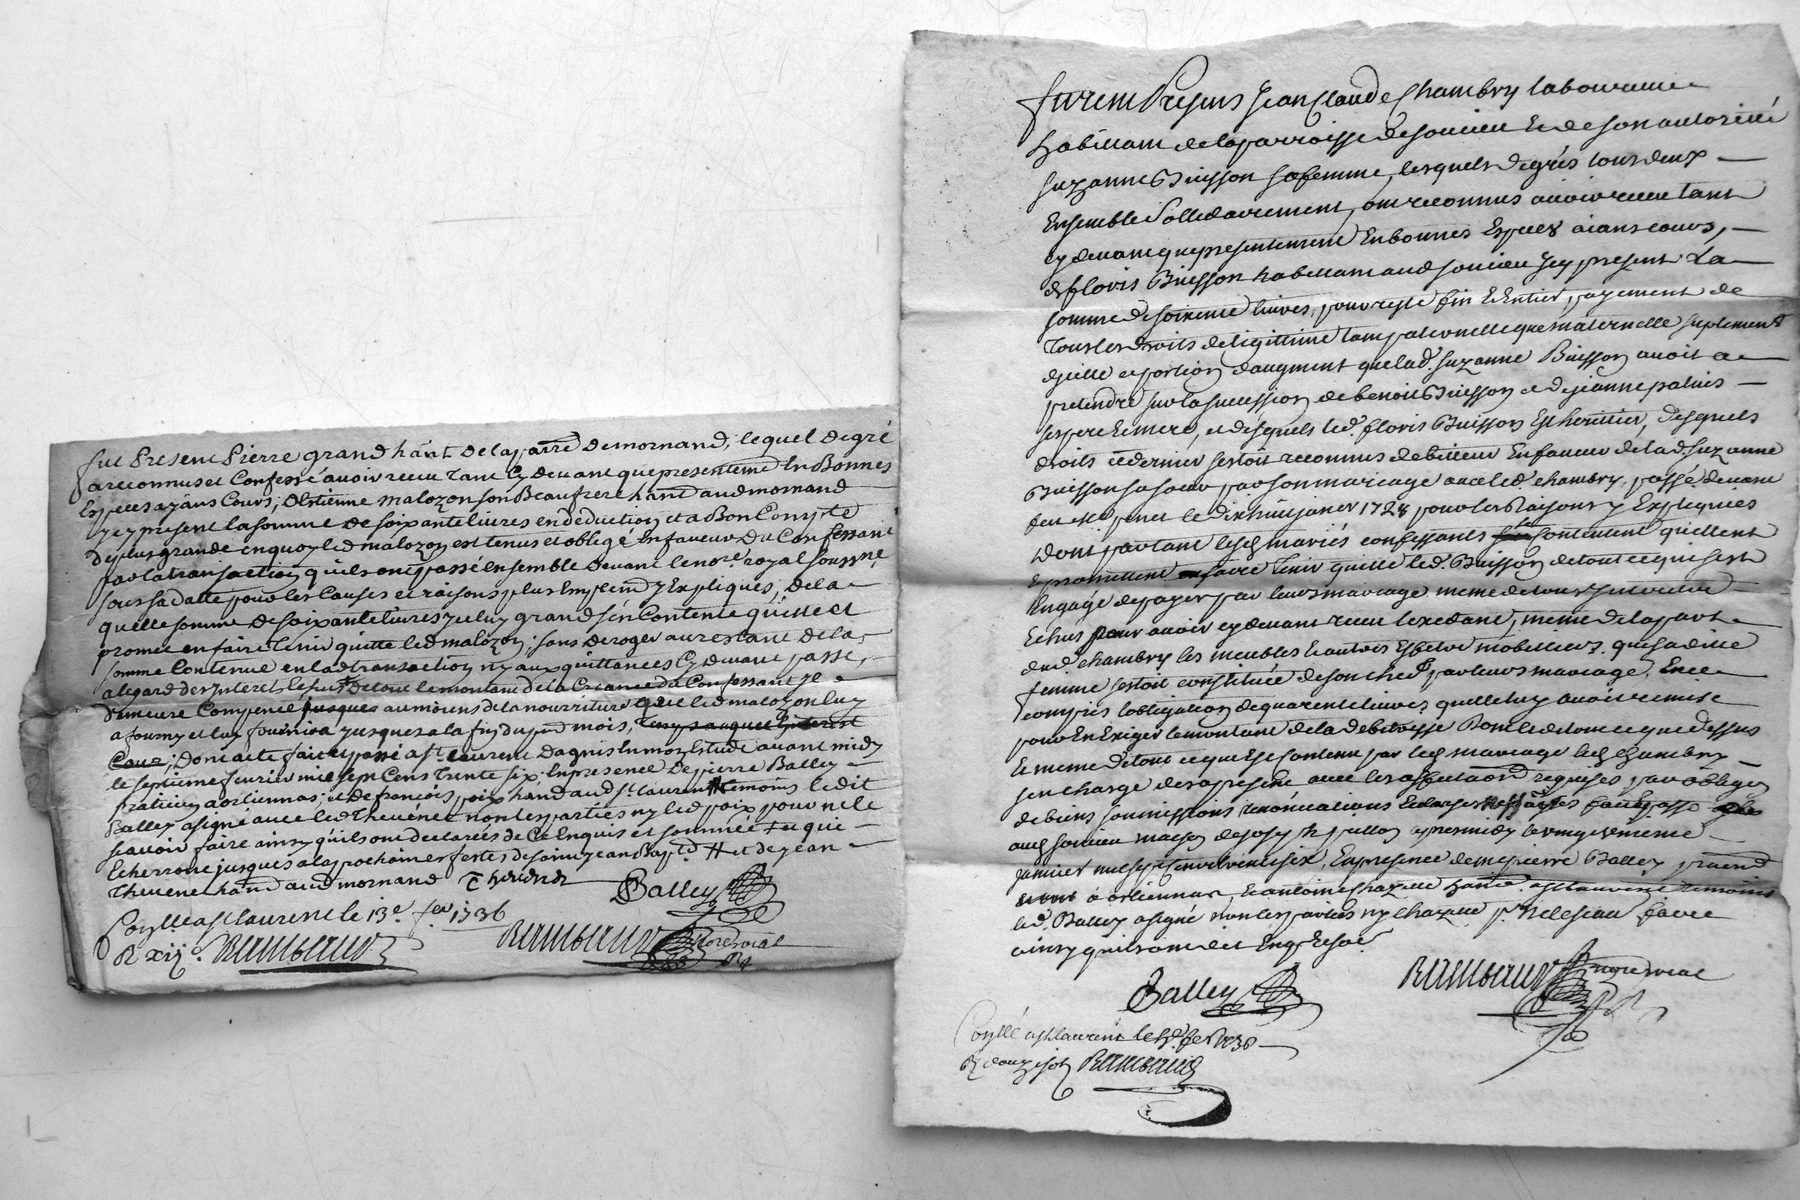 fut Present Pierre grand hant de la parre de mornand, lequel de gré
a reconnu et Confessé avoir receu tant Cy devant que presentemt En Bonnes
Especes ayans Cours, d'Estienne malozon son Beaufrere hant aud mornand
y cy present la somme de soixante livres en deduction et a Bon Compte
de plus grande en quoy led malozon est tenus et obligé En faveur du Confessant
par la transaction qu'ils ont passé ensemble devant le nore. royal soussné.
sous sa datte pour les Causes et raisons plus Emplemt y Expliqués, de la
quelle somme de soixante livres le luy grand s'en Contente quitte et
promet en faire tenir quitte led malozon, sans deroger au restant de la
somme Contenue en lad transaction ny aux quittances Cy devant passé,
a legard des Interets de tout le montant de la Creance du Confessant se
demeure Compensé jusques au moiens de la nourriture que led malozon luy
a fourny et luy fournira jusques a la fin du pnt mois,
Dont acte fait et passé a st. laurent dagnis En mon Etude avant midy
le septieme fevrier mil sept Cens trente six. En presence de pierre Balley
praticien a orliennas, et de françois poix hand aud st laurent # temoins led it
Balley a signé avec led Thevenet non les parties ny led poix pour ne le
sçavoir faire ainsy qu'ils ont declarés de Ce Enquis et sommés
Echerront jusques a la prochaine festes de saint jean Baptte # et de jean
Thevenet hand aud mornand Thevenet
Balley
Conllé a st laurent le 13e. fer. 1736
R xij s. Rambaud
Rambaud nore royal
furent Presens Jean Claude Chambry laboureur
habitant de la parroisse de soucieu Et de son autorité
suzanne Buisson sa femme, lesquels de grés tous deux
Ensemble solidairement, ont reconnus avoir receu tant
cy devant que presentement En bonnes Especes aians cours,
de floris Buisson habitant aud soucieu Jcy present La
somme de soixente livres, pour reste fin Et Entier payement de
tous les droits de legitime tant paternelle que maternelle suplement
d'jcelle et portion d'augment que lad. suzanne Buisson avoit a
pretendre sur la succession de benoit Buisson et de jeanne palais
ses pere Et mere, et desquels led. floris Buisson Est heritier, desquels
droits ce dernier s'estoit reconnus debiteur En faveur de lad. suzanne
Buisson sa soeur par son mariage avec led. chambry, passé devant
feu me le dixhuit janvier 1728 pour les Raisons y Expliquées
Dont partant lesd. mariés confessants se contentent quittent
Et promettent faire tenir quitte led. Buisson de tout ce qui s'est
Engagé de payer par leur mariage meme de tous Jnterets
Echus pour avoir cy devant receu l'excedant, meme de la part
dud. chambry les meubles Et autres Effets mobiliers que sad
femme s'estoit constituée de son chef par leurs mariage, En ce
compris l'obligation de quarente livres quelle luy avoit remise
pour En Exiger le montant de la debitrice Dont Et de tout ce que dessus
Et meme de tout ce que Est contenu par led. mariage led. chambry
s'en charge des a present avec les affectaons requises par obligaon
de biens soumissions renonciations Et clauses fait Et passé
aud. soucieu maison de josph jullien apres midy le vingt neuvieme
janvier mil sept Cens trente six. En presence de me pierre Balley praticien
a orliennas, Et antoine chazelle hant. a st laurent temoins
led. Balley a signé non les parties ny chazelle pr. ne le scavoir faire
ainsy qu'ils ont dit Enq. Et som
Balley
Rambaud nore royal
Conllé a st laurent le
R douze sols Rambaud